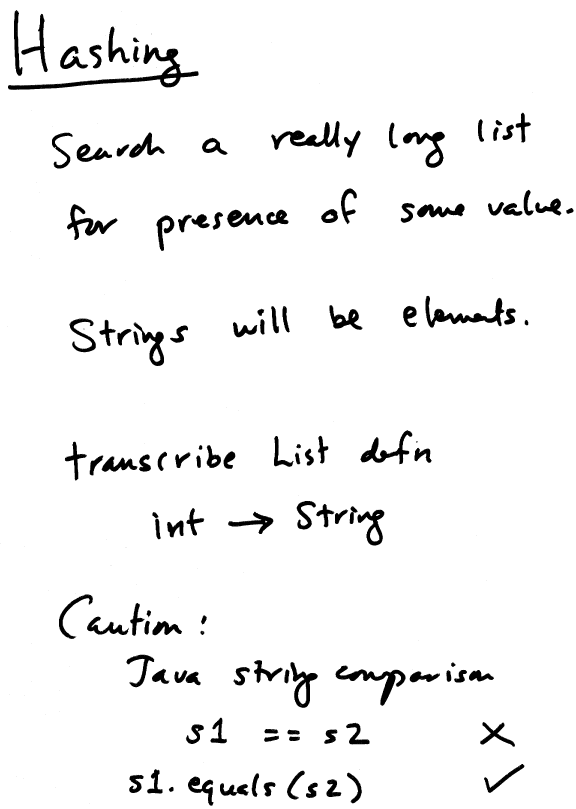 Hashing
Search a really long list
for presence of some value.
Strings will be elements.
transcribe List defn
int → String
Caution:
Java string comparison
s1 == s2 ✗
s1.equals(s2) ✓